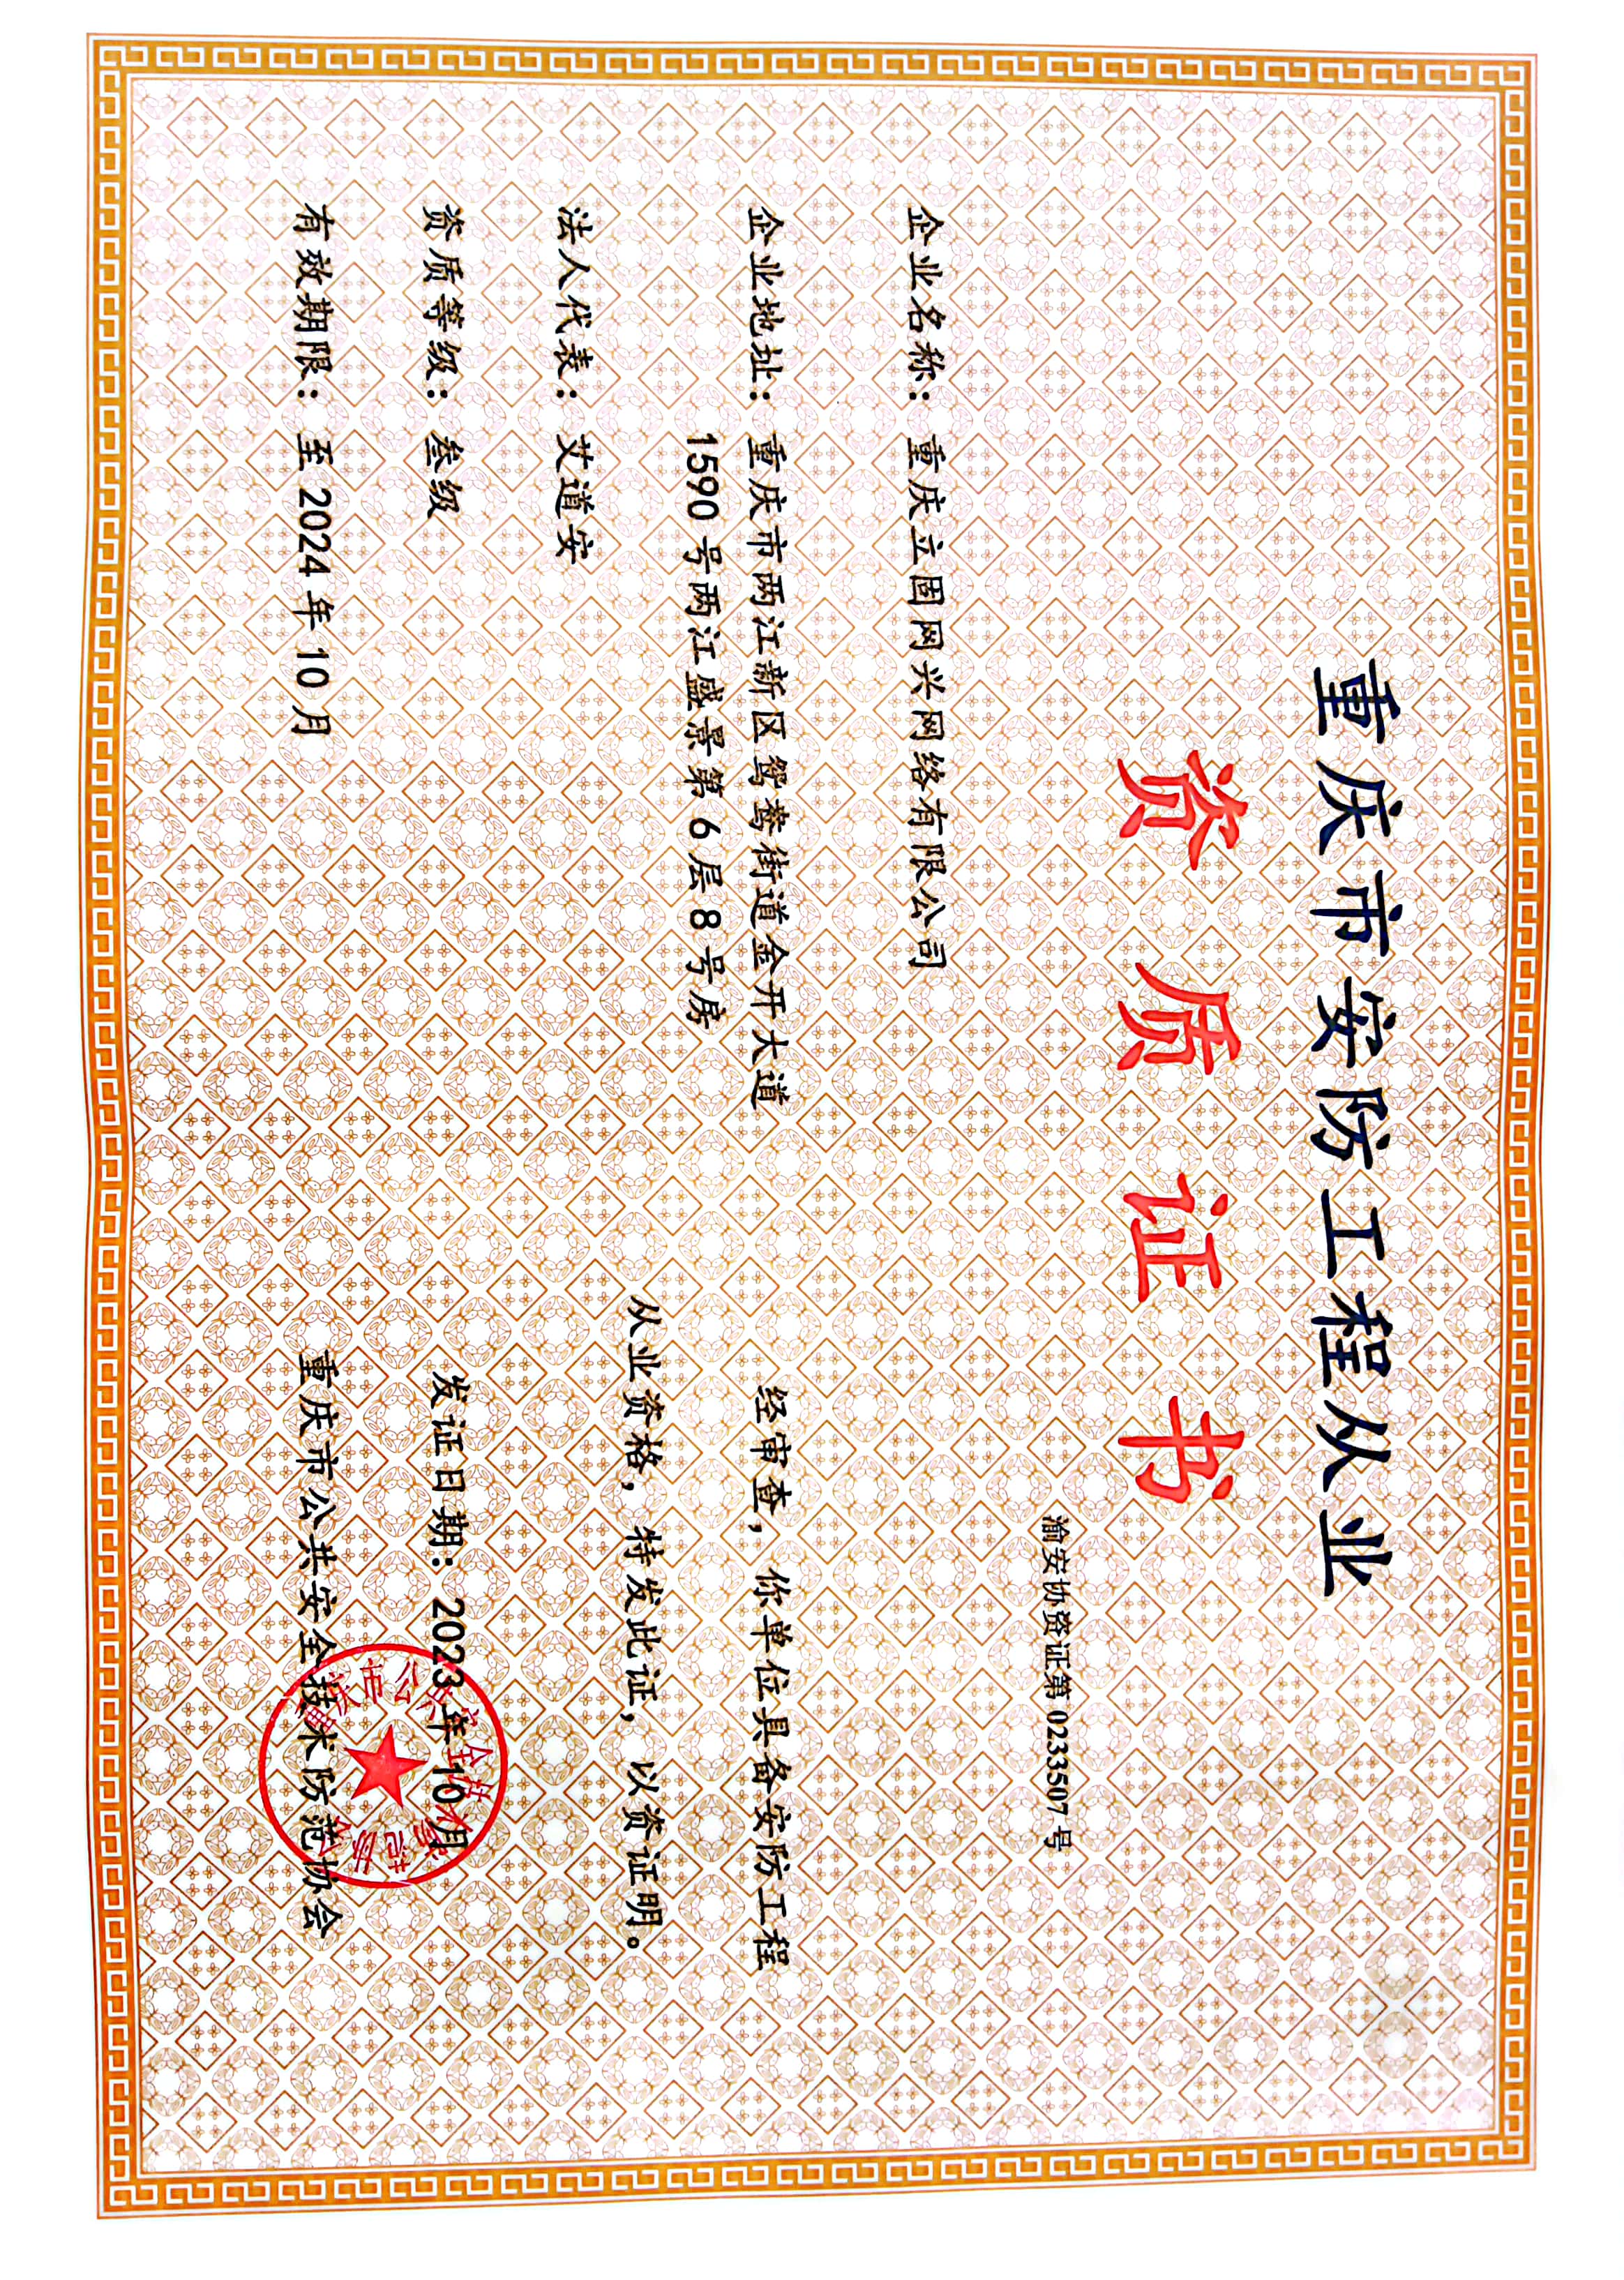 重庆市安防工程从业
资质证书
渝安协资证第 0233507 号
企业名称：重庆立固网兴网络有限公司
企业地址：重庆市两江新区鸳鸯街道金开大道
1590 号两江盛景第 6 层 8 号房
法人代表：艾道安
资质等级：叁级
有效期限：至 2024 年 10 月
经审查，你单位具备安防工程
从业资格，特发此证，以资证明。
发证日期：2023 年 10 月
重庆市公共安全技术防范协会
重庆市公共安全技术防范协会